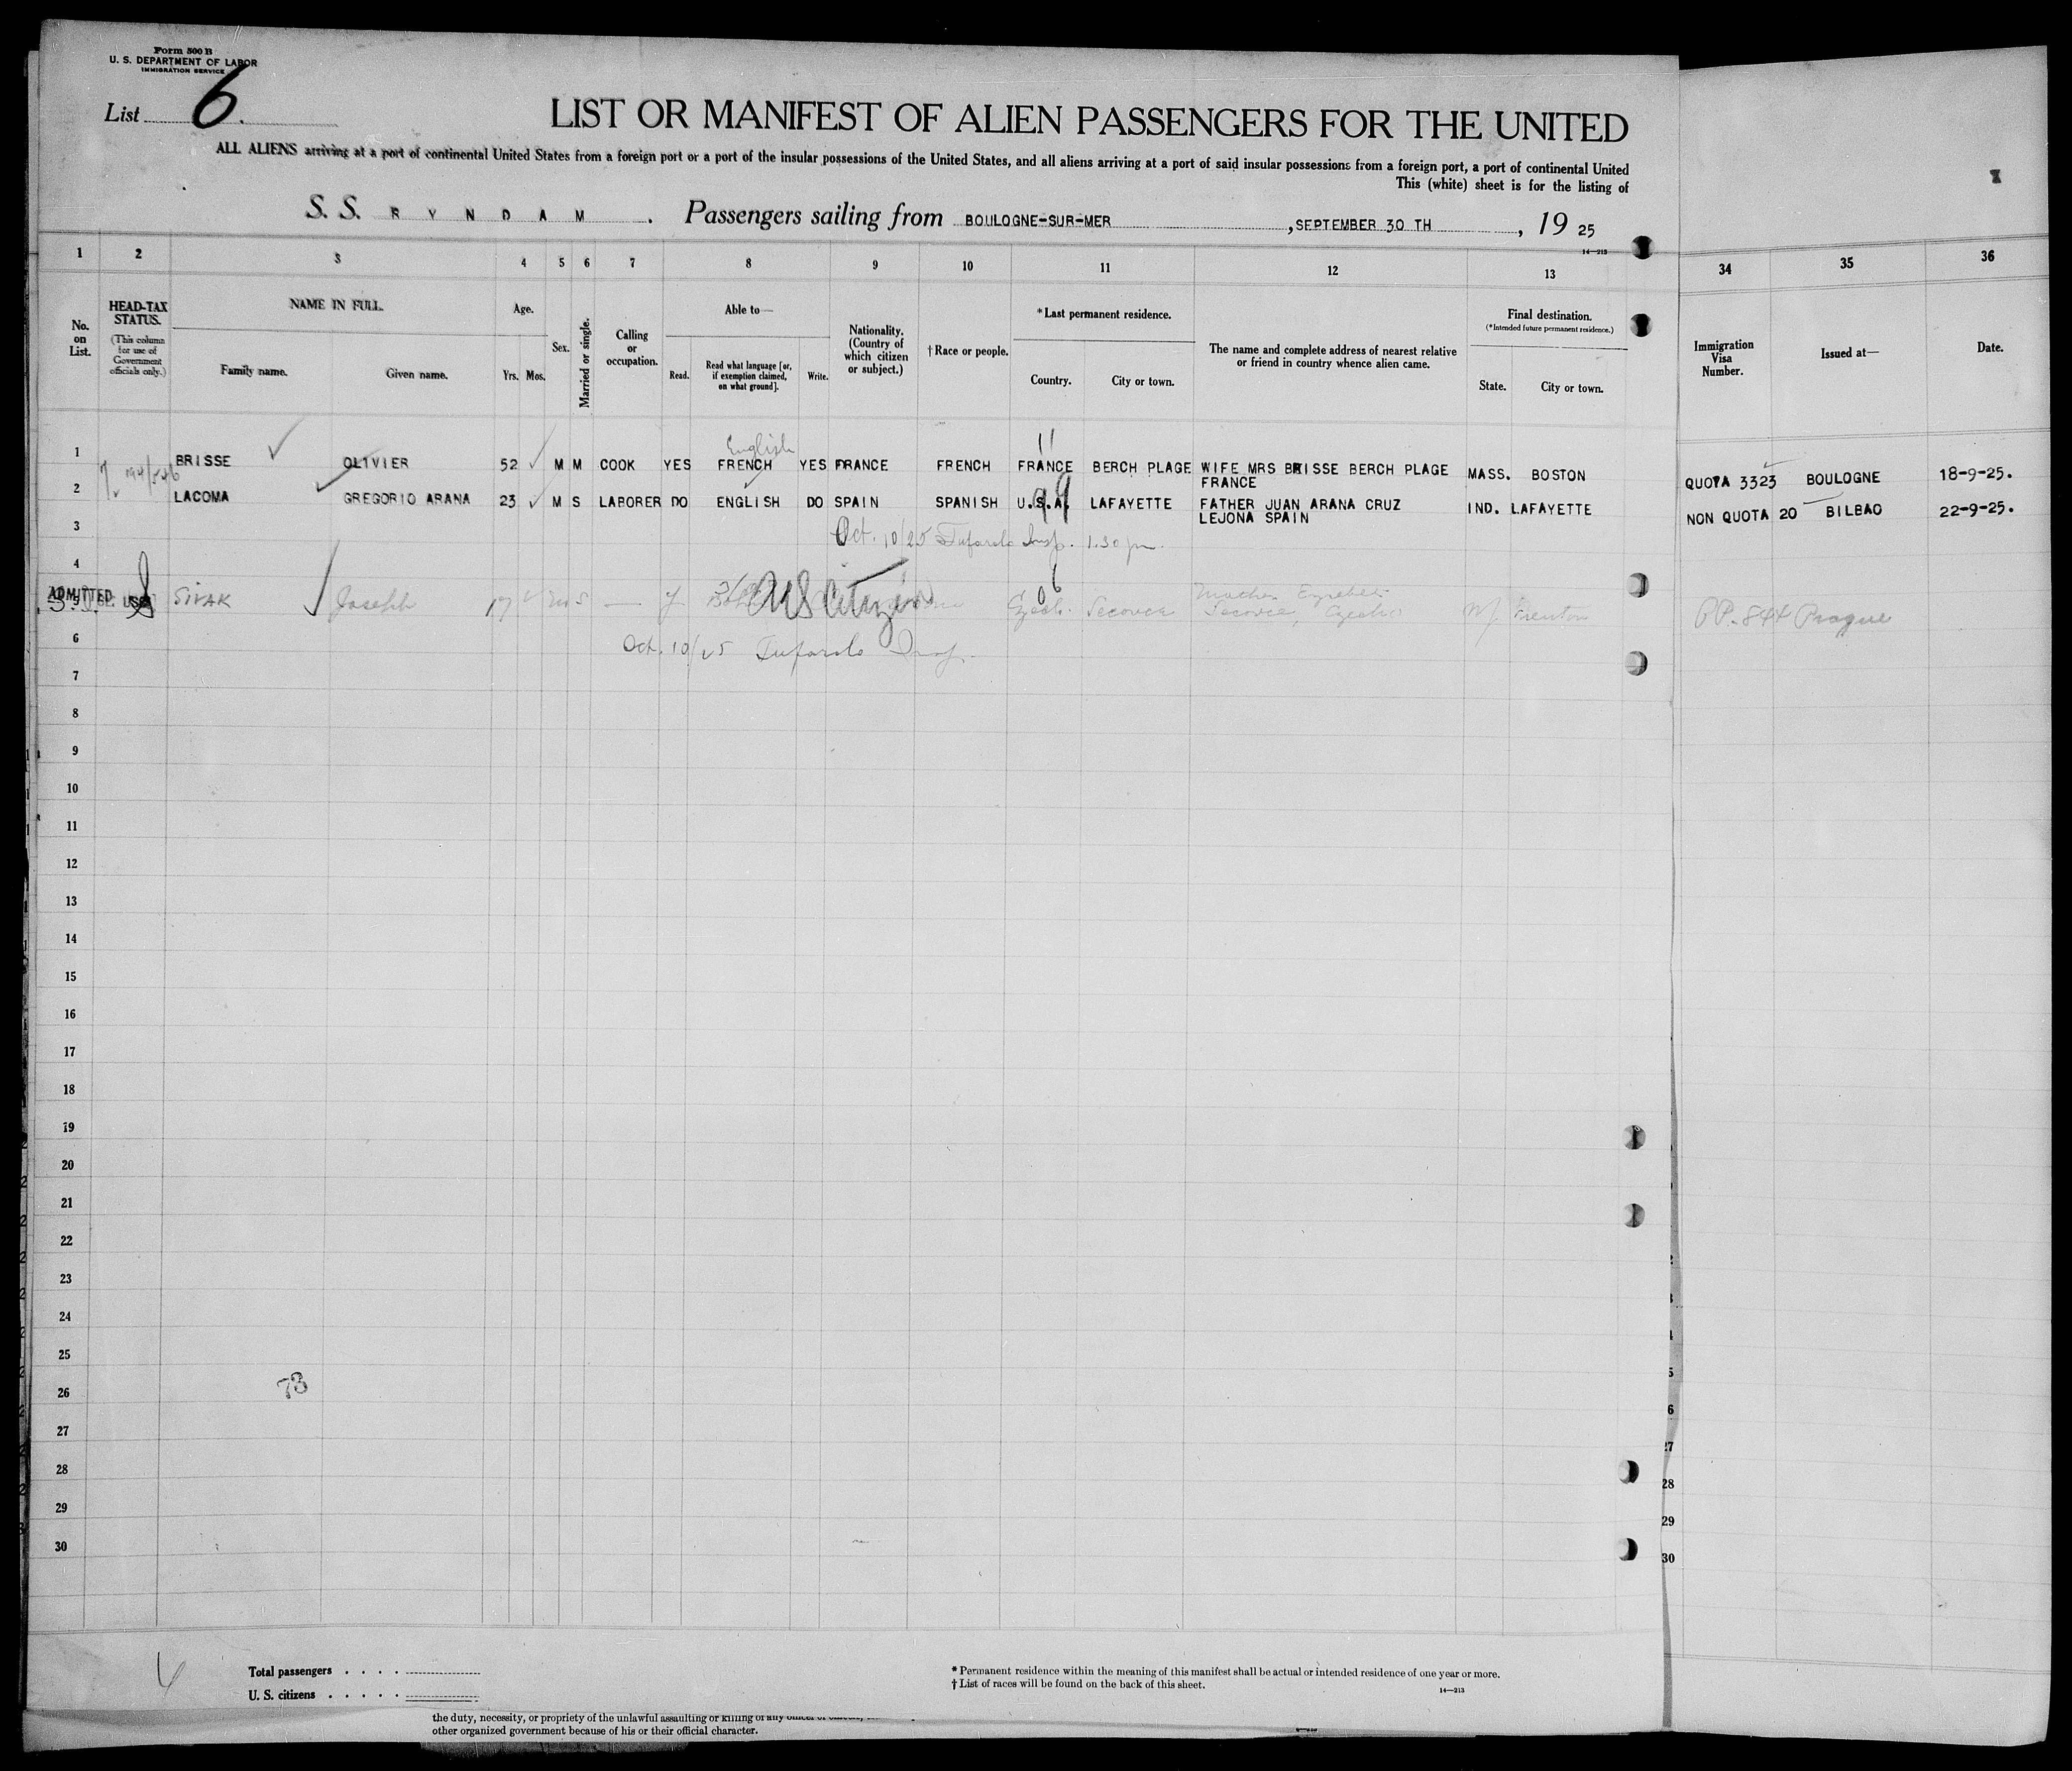 Form 500 B
U. S. DEPARTMENT OF LABOR
IMMIGRATION SERVICE
List 6.
LIST OR MANIFEST OF ALIEN PASSENGERS FOR THE UNITED
ALL ALIENS arriving at a port of continental United States from a foreign port or a port of the insular possessions of the United States, and all aliens arriving at a port of said insular possessions from a foreign port, a port of continental United
This (white) sheet is for the listing of
S. S. R Y N D A M . Passengers sailing from BOULOGNE-SUR-MER , SEPTEMBER 30 TH , 19 25
14—213
1 2 3 4 5 6 7 8 9 10 11 12 13 34 35 36
No. on List.
HEAD-TAX STATUS.
(This column for use of Government officials only.)
NAME IN FULL.
Family name. Given name.
Age.
Yrs. Mos.
Sex.
Married or single.
Calling or occupation.
Able to—
Read. Read what language [or, if exemption claimed, on what ground]. Write.
Nationality. (Country of which citizen or subject.)
† Race or people.
* Last permanent residence.
Country. City or town.
The name and complete address of nearest relative or friend in country whence alien came.
Final destination.
(*Intended future permanent residence.)
State. City or town.
Immigration Visa Number.
Issued at—
Date.
English 11
1 BRISSE OLIVIER 52 M M COOK YES FRENCH YES FRANCE FRENCH FRANCE BERCH PLAGE WIFE MRS BRISSE BERCH PLAGE FRANCE MASS. BOSTON QUOTA 3323 BOULOGNE 18-9-25.
2 LACOMA GREGORIO ARANA 23 M S LABORER DO ENGLISH DO SPAIN SPANISH U.S.A. 99 LAFAYETTE FATHER JUAN ARANA CRUZ LEJONA SPAIN IND. LAFAYETTE NON QUOTA 20 BILBAO 22-9-25.
3 Oct. 10/25 Insp. 1.30 pm.
4
ADMITTED
5 SIVAK Joseph 17 M S — y US Citizen 06 Czech. Secovce Mother Secovce, Czecho NJ Trenton PP. 844 Prague
6 Oct. 10/25 Insp.
7
8
9
10
11
12
13
14
15
16
17
18
19
20
21
22
23
24
25
26 73
27
28
29
30
Total passengers . . . .
U. S. citizens . . . . .
* Permanent residence within the meaning of this manifest shall be actual or intended residence of one year or more.
† List of races will be found on the back of this sheet.
14—213
the duty, necessity, or propriety of the unlawful assaulting or killing of any officer or officers,
other organized government because of his or their official character.